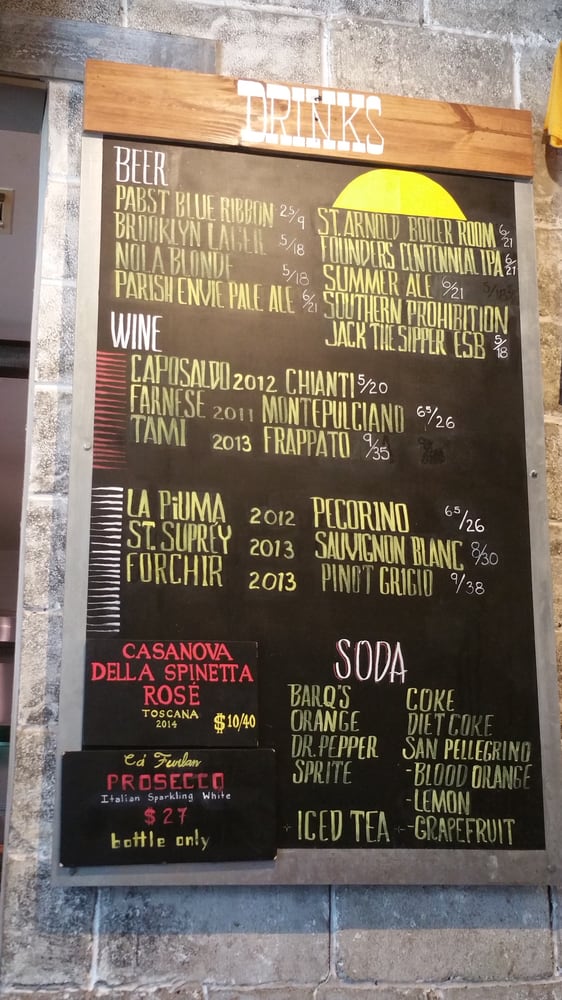 DRINKS
BEER
PABST BLUE RIBBON 2.5/9
BROOKLYN LAGER 5/18
NOLA BLONDE 5/18
PARISH ENVIE PALE ALE 6/21
ST. ARNOLD BOILER ROOM 6/21
FOUNDERS CENTENNIAL IPA 6/21
SUMMER ALE 6/21
SOUTHERN PROHIBITION
JACK THE SIPPER ESB 5/18
WINE
CAPOSALDO 2012 CHIANTI 5/20
FARNESE 2011 MONTEPULCIANO 6.5/26
TAMI 2013 FRAPPATO 9/35
LA PIUMA 2012 PECORINO 6.5/26
ST. SUPREY 2013 SAUVIGNON BLANC 8/30
FORCHIR 2013 PINOT GRIGIO 9/38
CASANOVA
DELLA SPINETTA
ROSÉ
TOSCANA
2014
$10/40
Ca' Furlan
PROSECCO
Italian Sparkling White
$27
bottle only
SODA
BARQ'S
ORANGE
DR. PEPPER
SPRITE
COKE
DIET COKE
SAN PELLEGRINO
-BLOOD ORANGE
-LEMON
-GRAPEFRUIT
ICED TEA